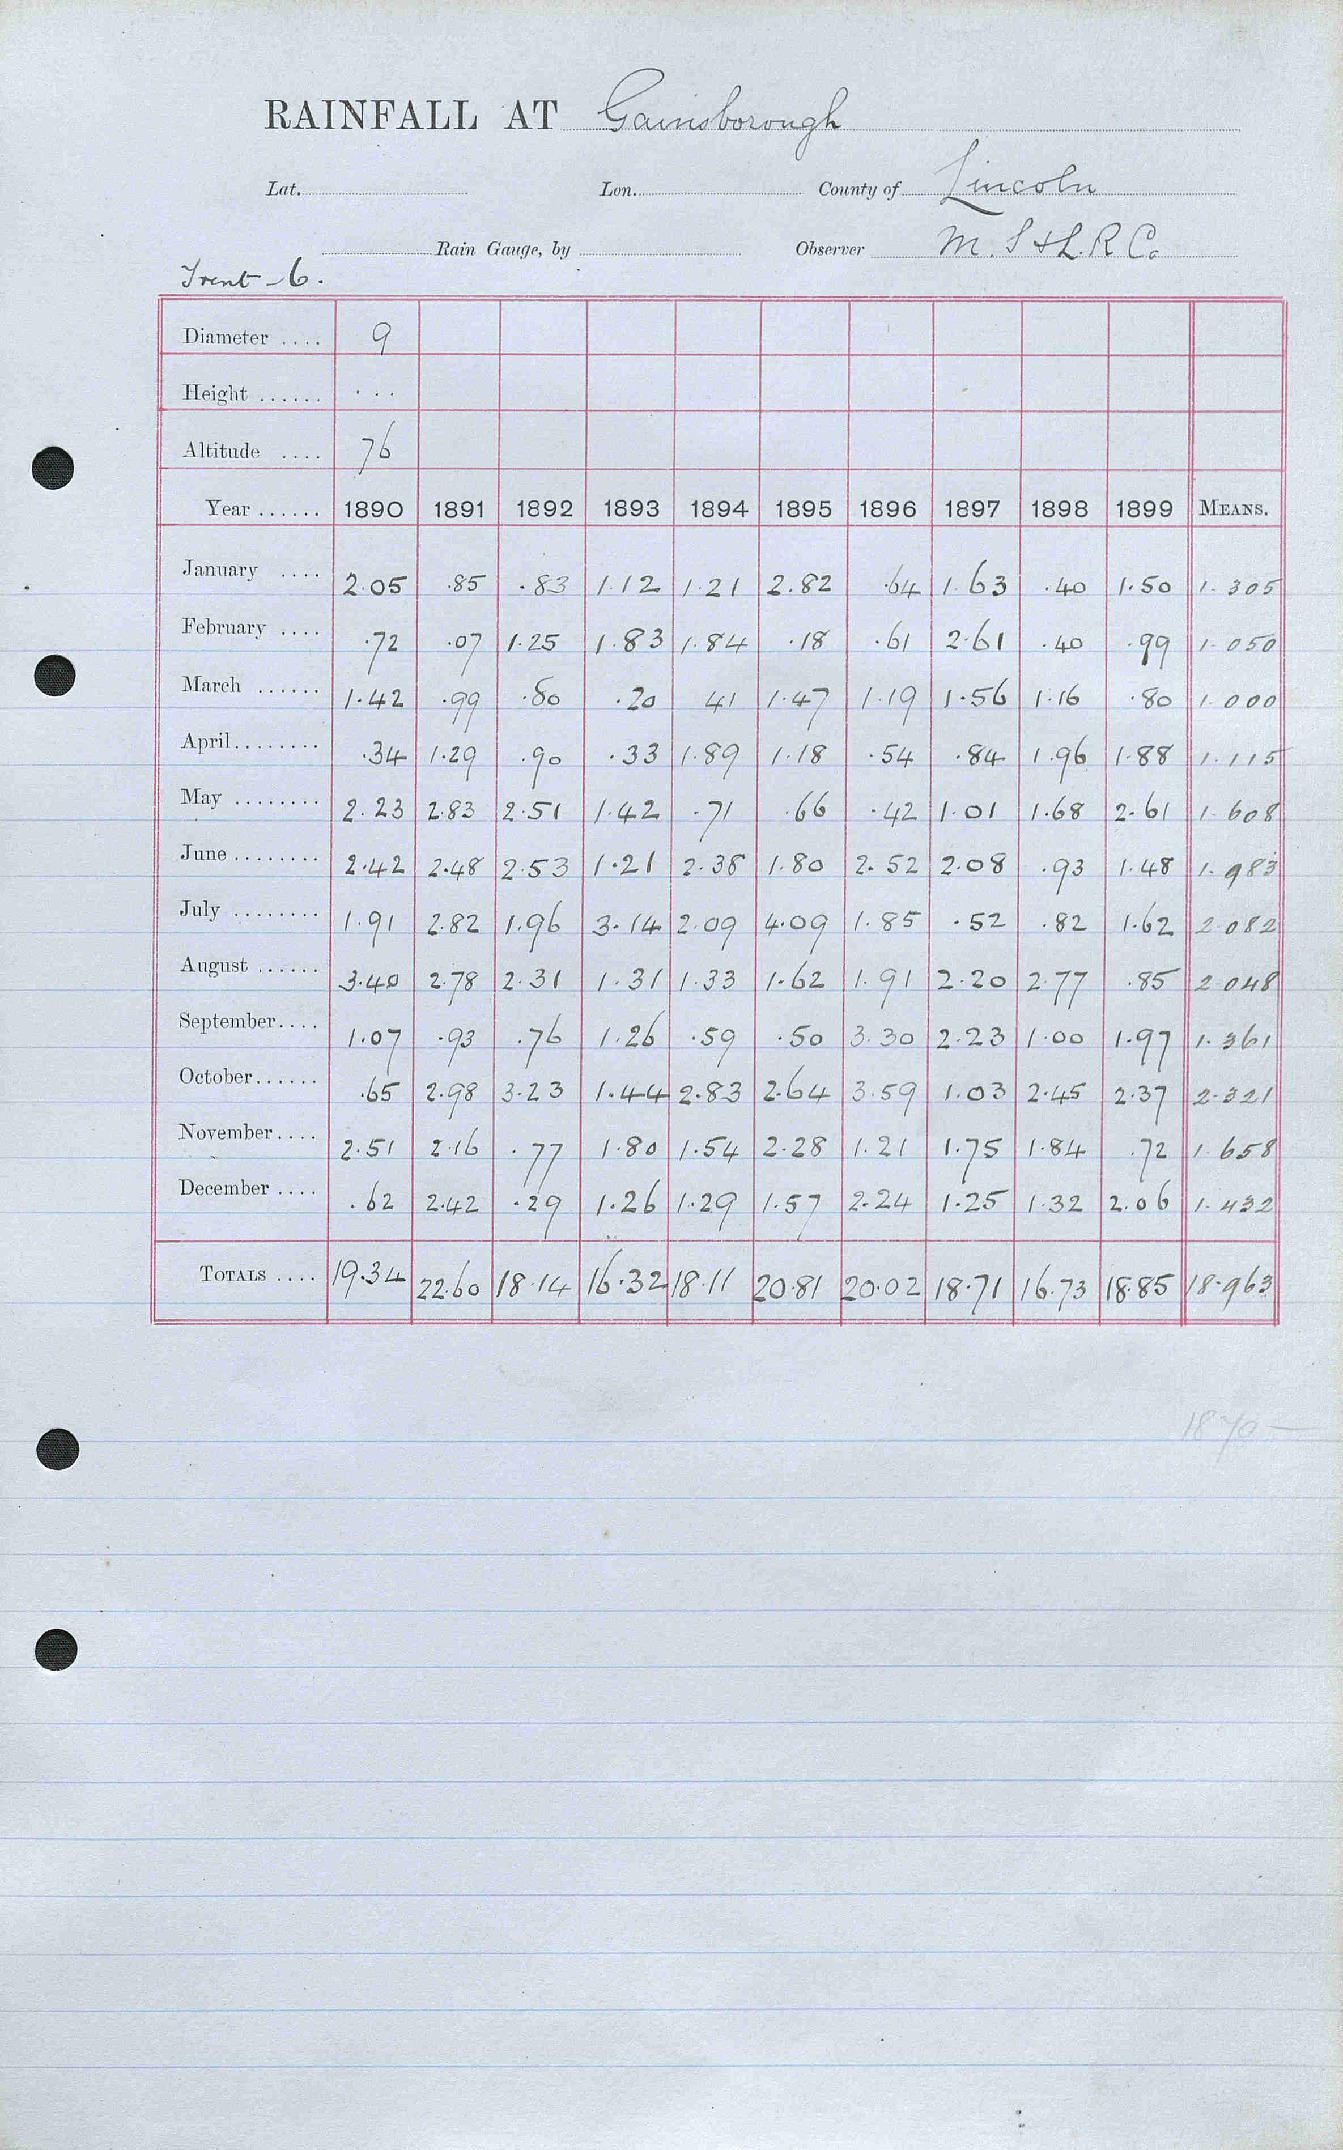 RAINFALL AT Gainsborough
Lat. Lon. County of Lincoln
Rain Gauge, by Observer M. S & L. R Co.
Trent - 6.
Diameter .... 9
Height ...... ...
Altitude .... 76
Year ...... 1890 1891 1892 1893 1894 1895 1896 1897 1898 1899 MEANS.
January .... 2.05 .85 .83 1.12 1.21 2.82 .64 1.63 .40 1.50 1.305
February .... .72 .07 1.25 1.83 1.84 .18 .61 2.61 .40 .99 1.050
March ...... 1.42 .99 .80 .20 41 1.47 1.19 1.56 1.16 .80 1.000
April........ .34 1.29 .90 .33 1.89 1.18 .54 .84 1.96 1.88 1.115
May ........ 2.23 2.83 2.51 1.42 .71 .66 .42 1.01 1.68 2.61 1.608
June ........ 2.42 2.48 2.53 1.21 2.38 1.80 2.52 2.08 .93 1.48 1.983
July ........ 1.91 2.82 1.96 3.14 2.09 4.09 1.85 .52 .82 1.62 2.082
August ...... 3.40 2.78 2.31 1.31 1.33 1.62 1.91 2.20 2.77 .85 2.048
September.... 1.07 .93 .76 1.26 .59 .50 3.30 2.23 1.00 1.97 1.361
October...... .65 2.98 3.23 1.44 2.83 2.64 3.59 1.03 2.45 2.37 2.321
November.... 2.51 2.16 .77 1.80 1.54 2.28 1.21 1.75 1.84 .72 1.658
December .... .62 2.42 .29 1.26 1.29 1.57 2.24 1.25 1.32 2.06 1.432
TOTALS .... 19.34 22.60 18.14 16.32 18.11 20.81 20.02 18.71 16.73 18.85 18.963
1870 —